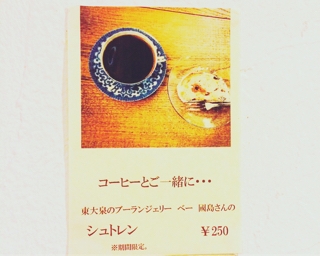 コーヒーとご一緒に・・・
東大泉のブーランジェリー ベー 國島さんの
シュトレン ￥250
※期間限定。